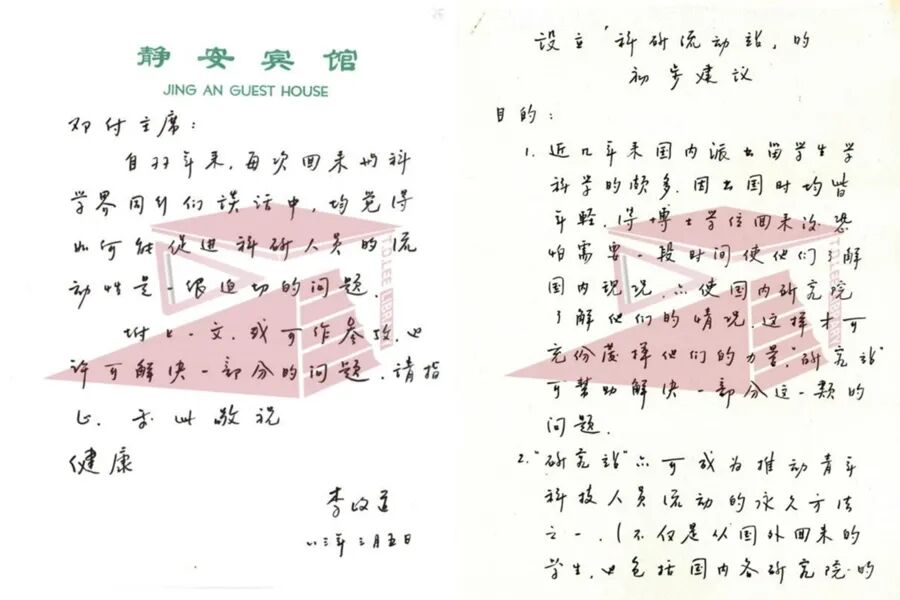 静安宾馆
JING AN GUEST HOUSE
邓付主席：
自77年来，每次回来与科
学界同行们谈话中，均觉得
如何能促进科研人员的流
动性是一很迫切的问题．
附上一文，或可作参考，也
许可解决一部分的问题．请指
正．专此敬祝
健康
李政道
八三年三月五日
T.D.LEE LIBRARY
设立“科研流动站”的
初步建议
目的：
1. 近几年来国内派出留学生学
科学的颇多．因出国时均皆
年轻，得博士学位回来后恐
怕需要一段时间使他们了解
国内现况，亦使国内研究院
了解他们的情况．这样才可
充份发挥他们的力量．“研究站”
可帮助解决一部分这一类的
问题．
2. “研究站”亦可成为推动青年
科技人员流动的永久方法
之一．（不仅是从国外回来的
学生，也包括国内各研究院的
T.D.LEE LIBRARY